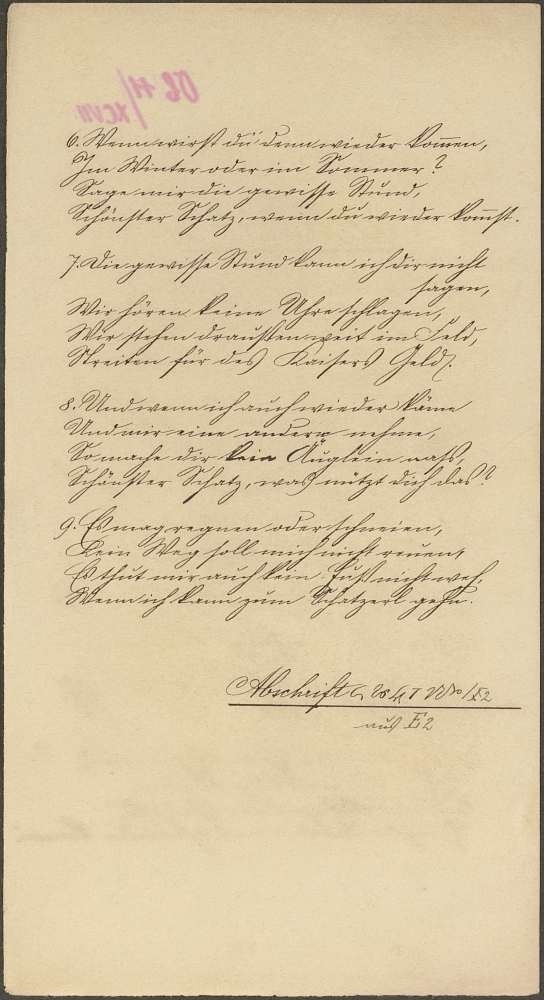 6. Wenn wirst du denn wieder kom̄en,
Im Winter oder im Sommer?
Sage mir die gewisse Stund,
Schönster Schatz, wenn du wieder kom̄st.
7. Die gewisse Stund kann ich dir nicht
sagen,
Wir hören keine Uhre schlagen,
Wir stehen draußen weit im Feld,
Streiten für des Kaisers Geld.
8. Und wenn ich auch wieder käme
Und mir eine andere nehme,
So mache dir kein Äuglein naß,
Schönster Schatz, was nützt dich das?
9. Es mag regnen oder schneien,
Kein Weg soll mich nicht reuen,
Es thut mir auch kein Fuß nicht weh,
Wenn ich kann zum Schatzerl gehn.
Abschrift
aus E2